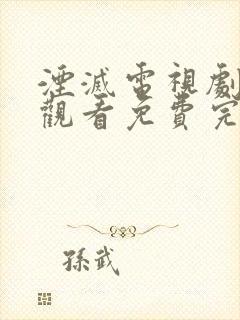 湮滅電視劇
觀看免費完
孫武